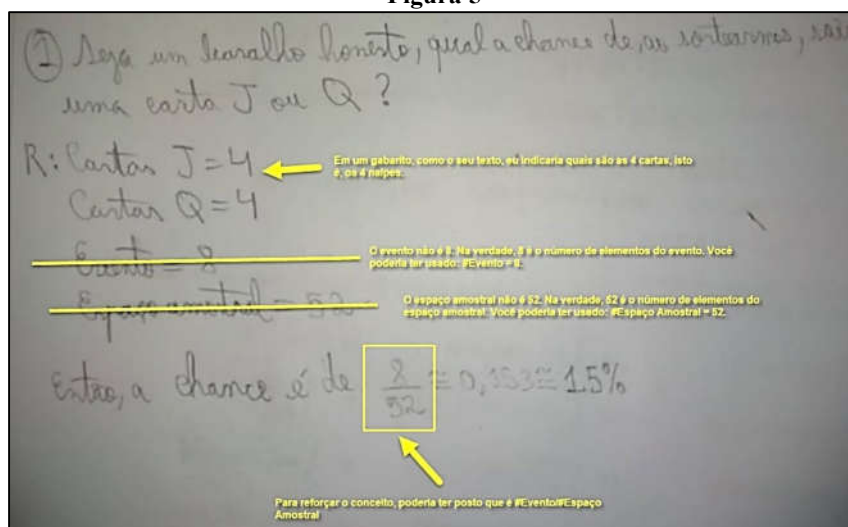 Figura 3
① Seja um baralho honesto, qual a chance de, ao sortearmos, sair
uma carta J ou Q?
R: Cartas J = 4
Em um gabarito, como o seu texto, eu indicaria quais são as 4 cartas, isto
é, os 4 naipes.
Cartas Q = 4
Evento = 8
O evento não é 8. Na verdade, 8 é o número de elementos do evento. Você
poderia ter usado: #Evento = 8.
Espaço amostral = 52
O espaço amostral não é 52. Na verdade, 52 é o número de elementos do
espaço amostral. Você poderia ter usado: #Espaço Amostral = 52.
Então, a chance é de 8/52 ≅ 0,153 ≅ 15%
Para reforçar o conceito, poderia ter posto que é #Evento/#Espaço
Amostral